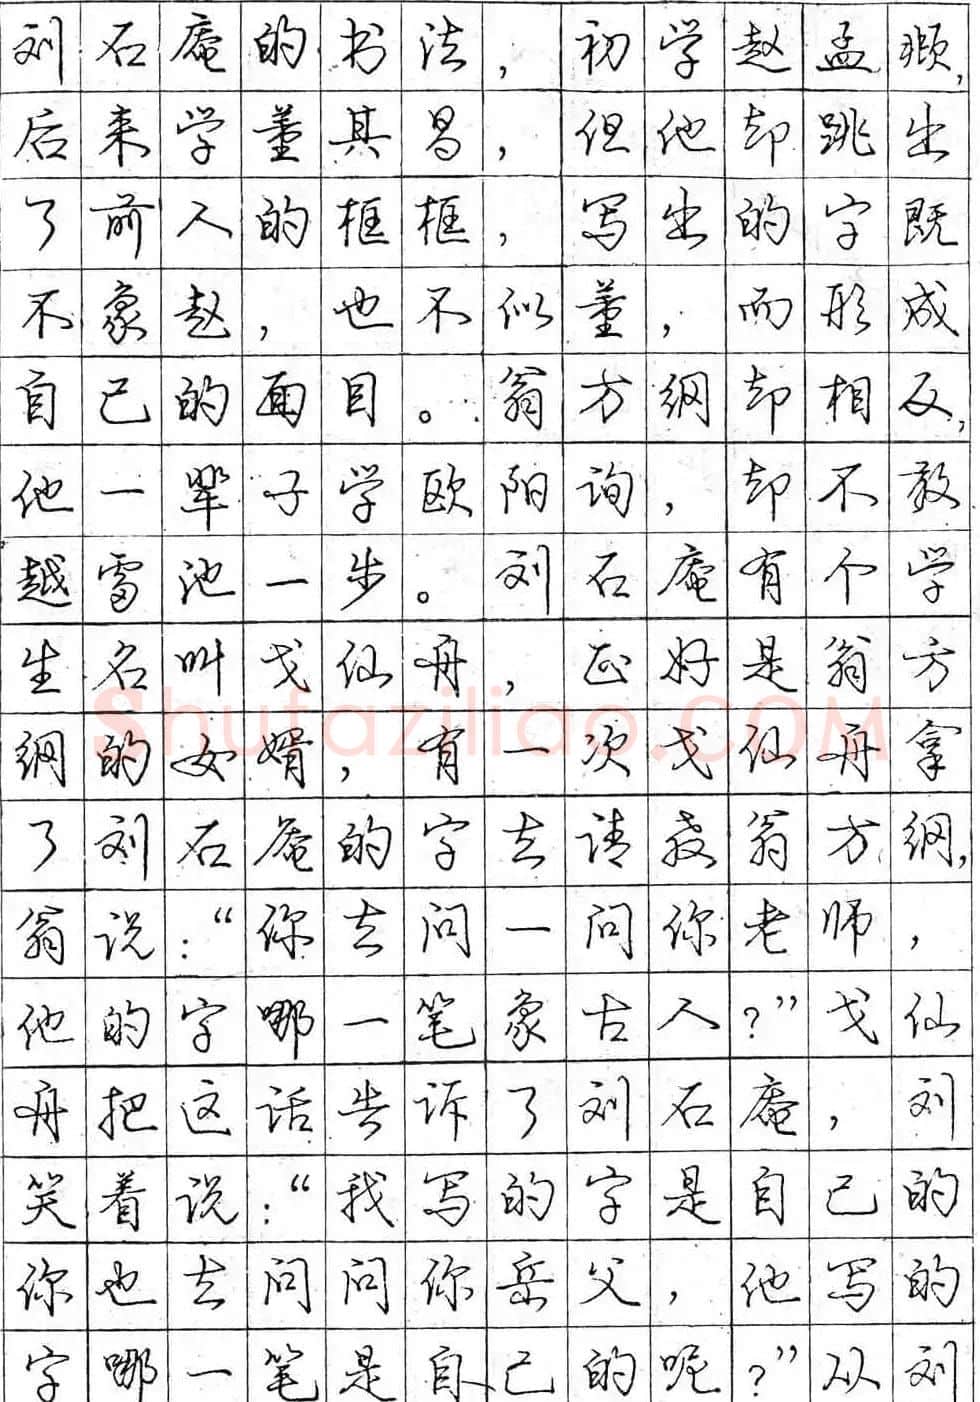 刘石庵的书法，初学赵孟頫，
后来学董其昌，但他却跳出
了前人的框框，写出的字既
不象赵，也不似董，而形成
自己的面目。翁方纲却相反，
他一辈子学欧阳询，却不敢
越雷池一步。刘石庵有个学
生名叫戈仙舟，正好是翁方
纲的女婿，有一次戈仙舟拿
了刘石庵的字去请教翁方纲，
翁说：“你去问一问你老师，
他的字哪一笔象古人？”戈仙
舟把这话告诉了刘石庵，刘
笑着说：“我写的字是自己的
你也去问问你岳父，他写的
字哪一笔是自己的呢？”从刘
Shufaziliao.COM